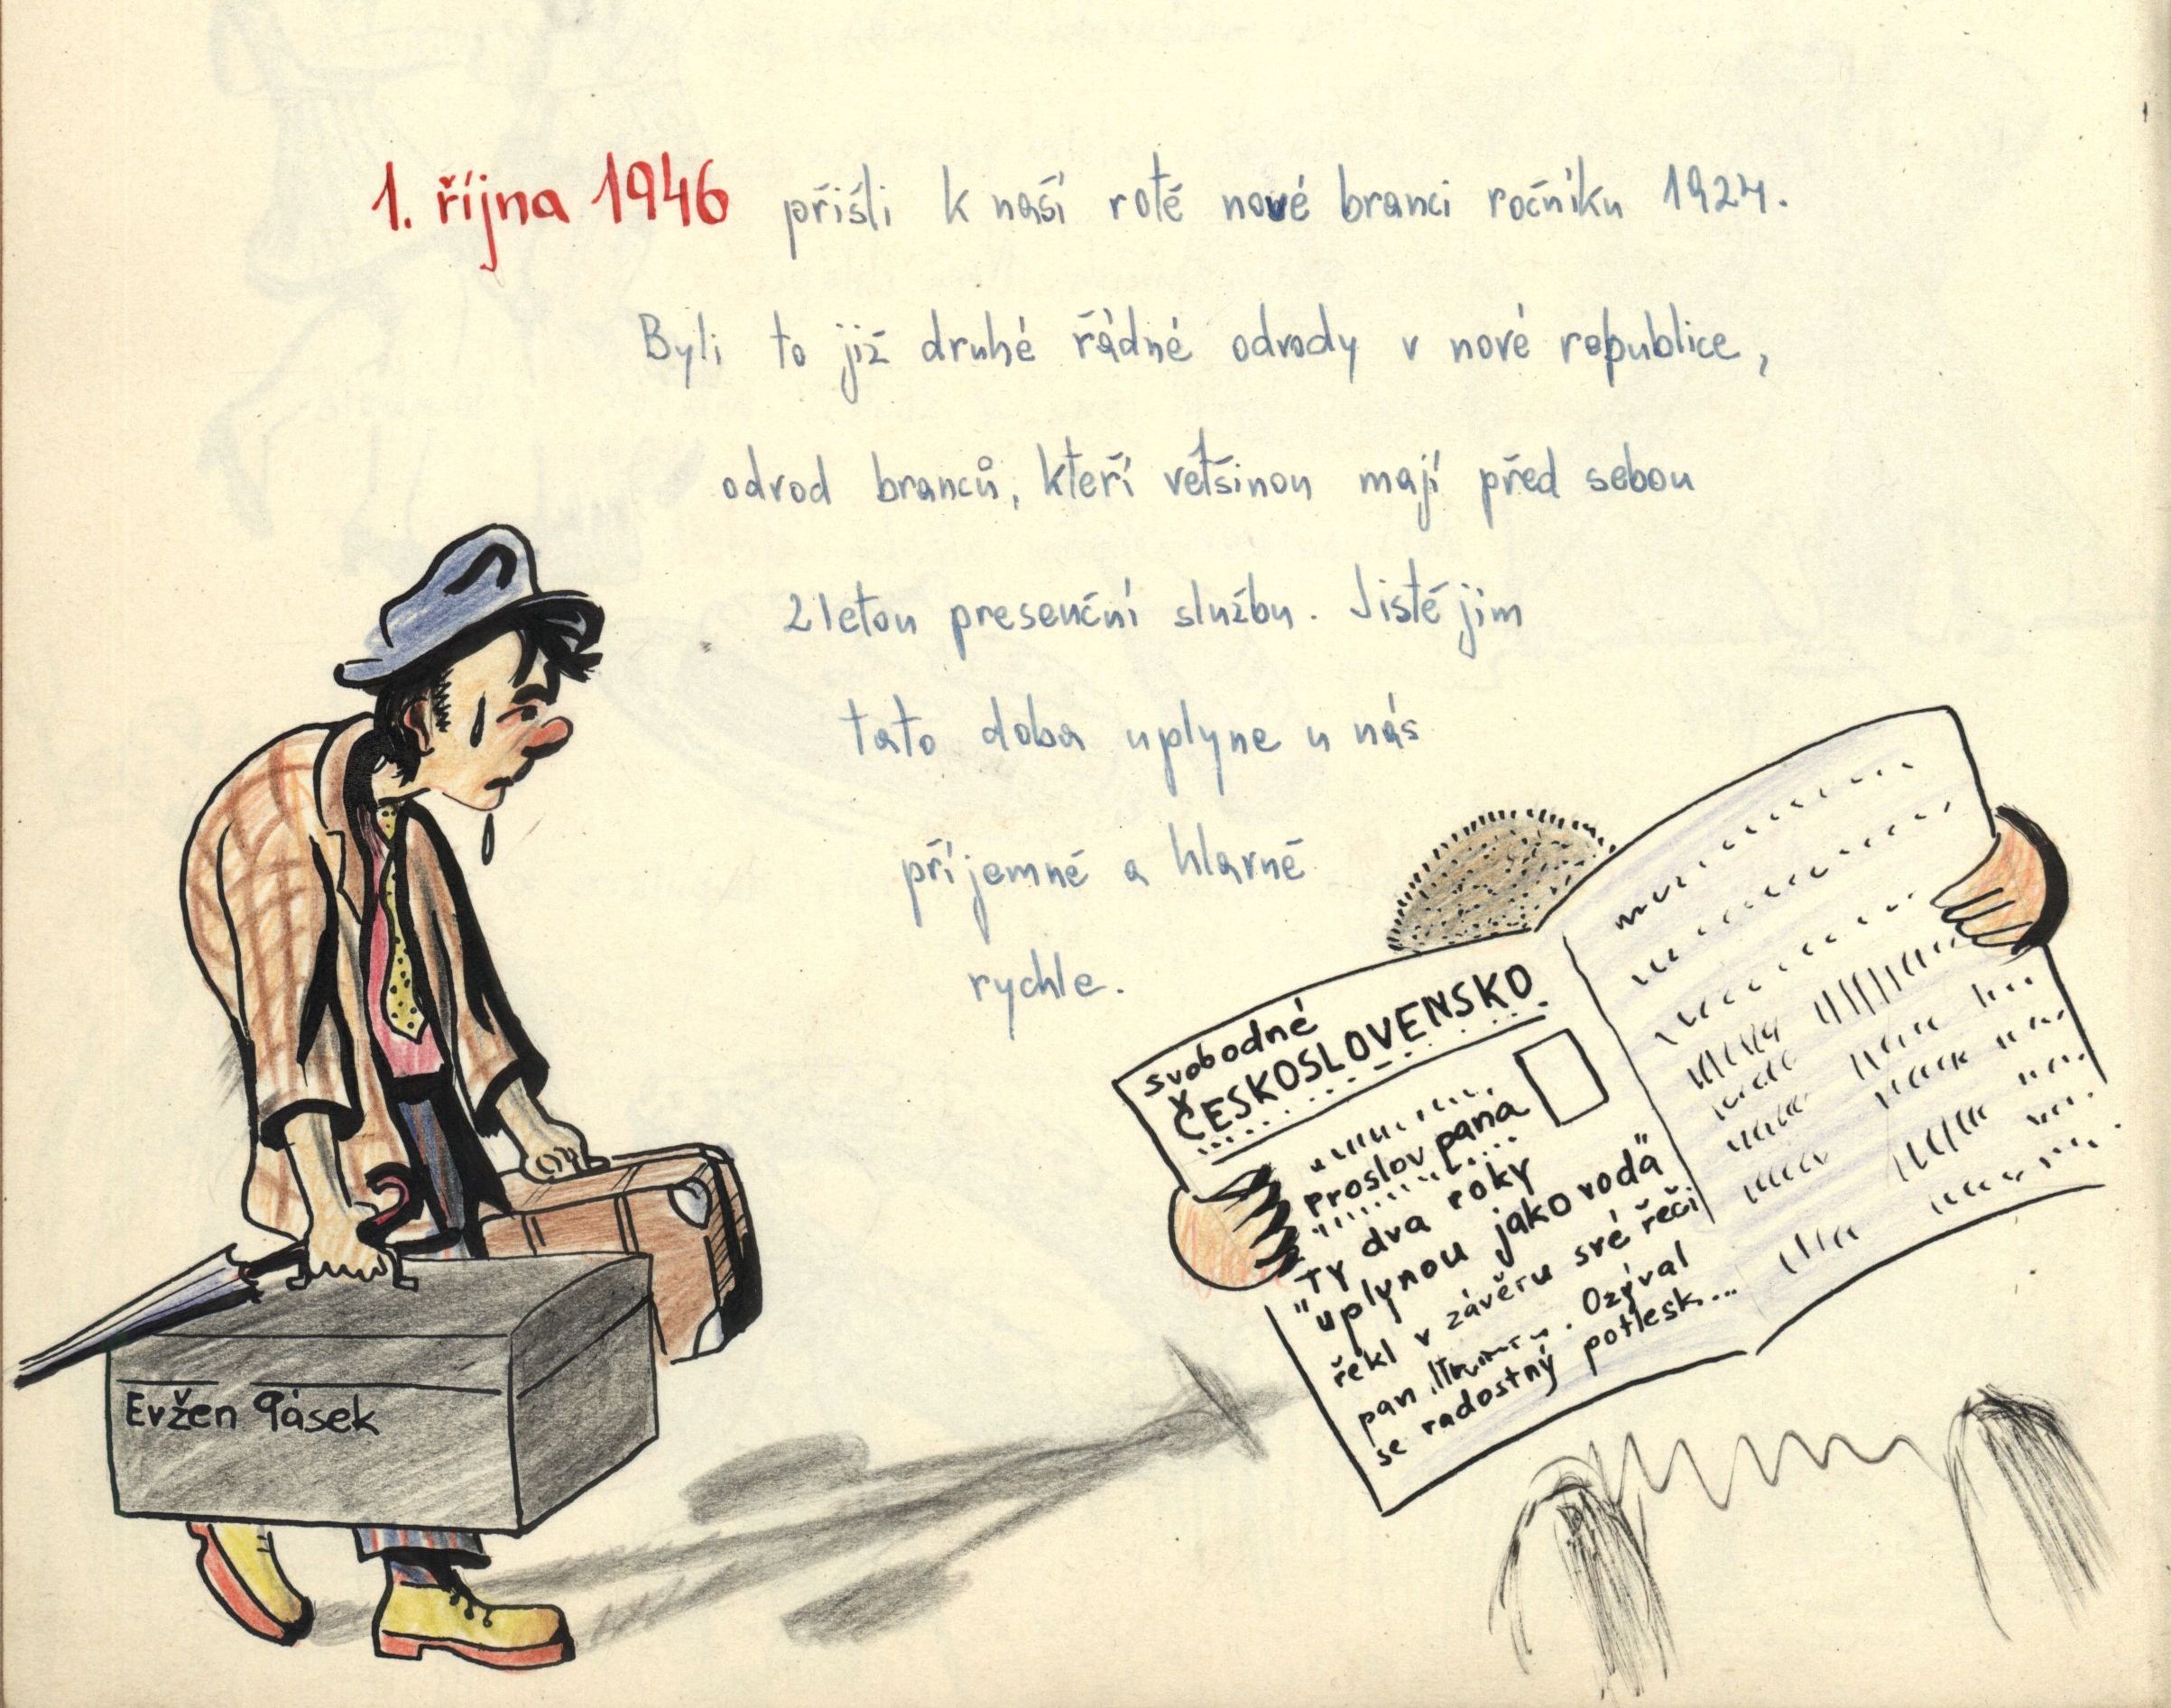 1. října 1946 přišli k naší rotě nové branci ročníku 1924.
Byli to již druhé řádné odvody v nové republice,
odvod branců, kteří většinou mají před sebou
2letou presenční službu. Jistě jim
tato doba uplyne u nás
příjemně a hlavně
rychle.
svobodné
ČESKOSLOVENSKO
proslov pana
"Ty dva roky
uplynou jako voda"
řekl v závěru své řeči
pan . Ozýval
se radostný potlesk...
Evžen Pásek